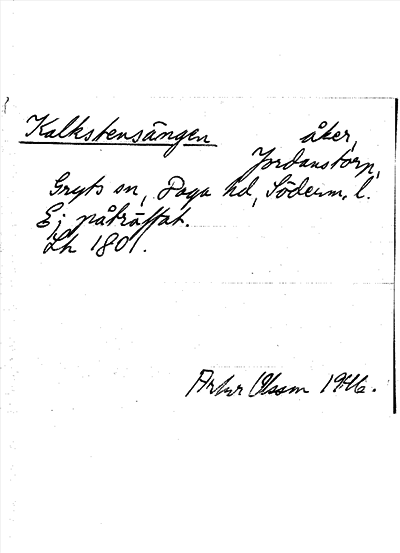 Kalkstensängen åker,
Jordanstorp,
Gryts sn, Daga hd, Söderm. l.
Ej påträffat.
Lh 1801.
Artur Olsson 1946.